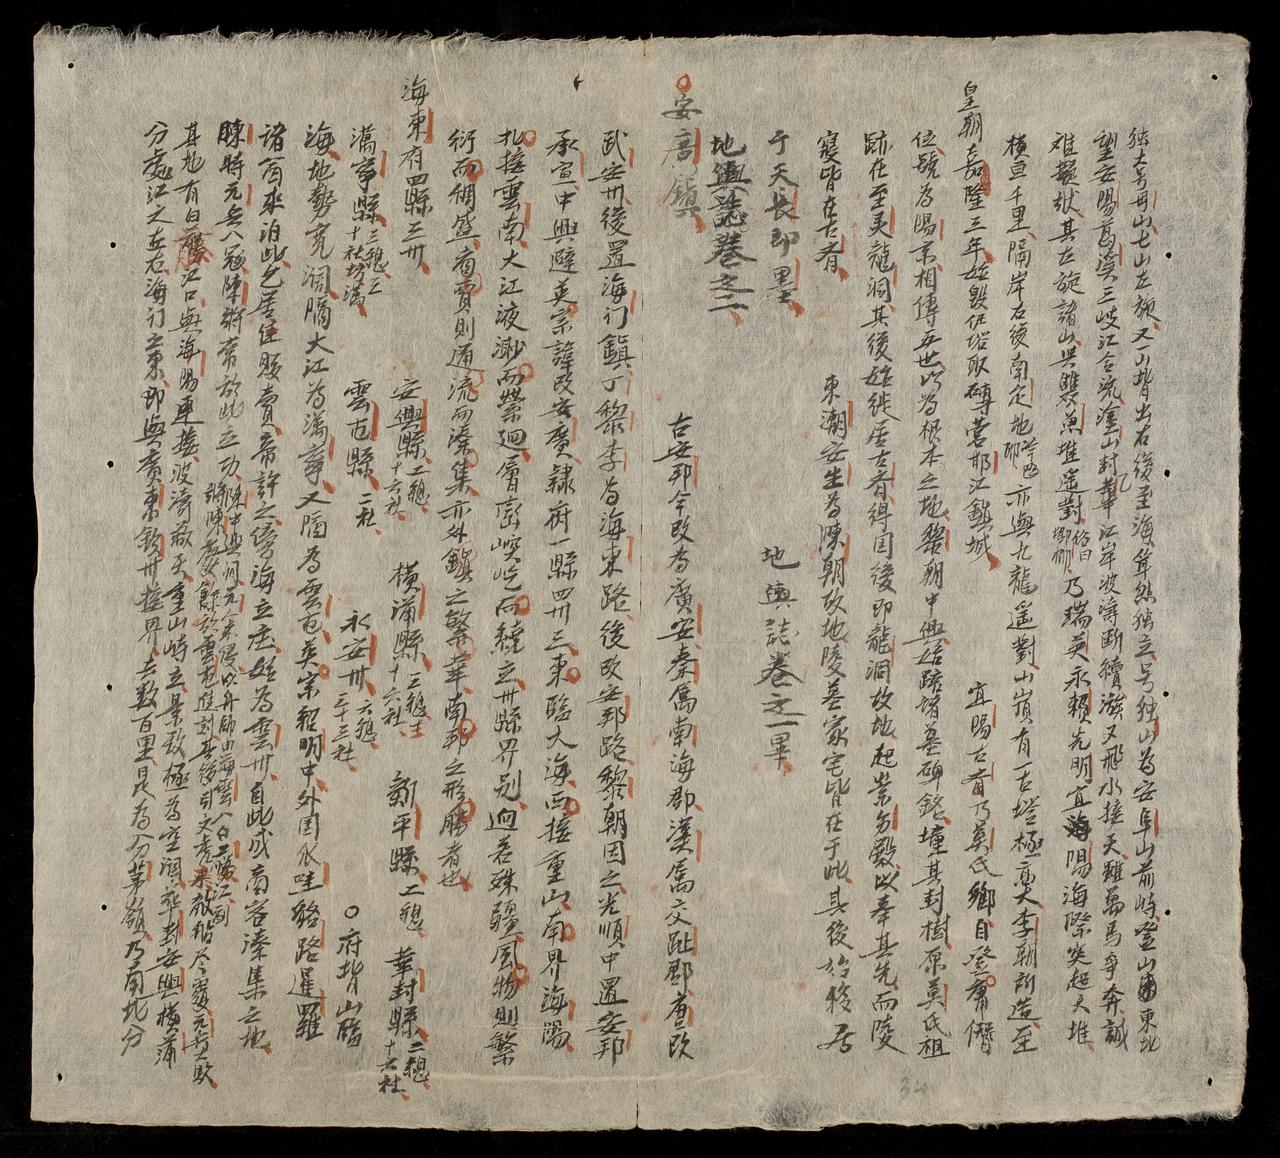 独大号母山七山左旋又一山背出右後至海耸然独立号独山為安阜山前峙登山東北
望安陽葛渓三岐江合流塗山封華江岸波濤断續激又飛水接天雖萬馬爭奔誠
难擬狀其左旋諸山共雙魚堆遥對俗曰乃瑞英永賴先明宜陽海際突起大堆
横亘千里隔岸右後南定地亦與九龍遥對山嶺有一古塔極高大李朝所造至
皇朝嘉隆三年始毁伍塔取磚营邯江鎮城宜陽古齋乃莫氏鄉自登庸僭
位號為陽京相傳五世以為根本之地黎朝中興姑踣諸墓碑銘壇其封樹原莫氏祖
跡在至灵龍洞其後始徙居古齋得国後即龍洞故地起崇多殿以奉其先而陵
寝皆在古齋東潮安生為陳朝故地陵墓家宅皆在于此其後於移居
于天長即墨
地輿誌卷之一畢
地輿誌卷之二
安廣鎮
古安邦今改為廣安秦属南海郡漢属交趾郡唐改
武安州後置海门鎮丁黎李為海東路後改安邦路黎朝因之光順中置安邦
承宣中興避英宗諱改安廣隸府一縣四州三東臨大海西接重山南界海陽
北接雲南大江液渺而縈迴層巒崒屹而繞之州縣界别逈若殊疆風物則繁
衍而稠盛商賈則通流而湊集亦外鎮之繁華南邦之形勝者也
海東府四縣三州
安興縣二總十六社
橫蒲縣三總十六社
新平縣二總
華封縣二總十六社
萬寧縣三總三十社坊萬
雲屯縣二社
永安州六總三十三社
府背山臨
海地勢寛濶隔大江為萬寧又隔為雲屯英宗紹明中外国爪哇路路暹羅
諸商來泊此乞居住販賣帝許之傍海立庄始為雲州自此成商客湊集之地
陳時元兵入寇陳將常於此立功
其地有白藤江口與海陽連接波濤蔽天重山峙立景致極為空濶華封安興橫蒲
分處江之左右海门立東即與廣東欽州接界去数百里是為分茅嶺乃南北分
34